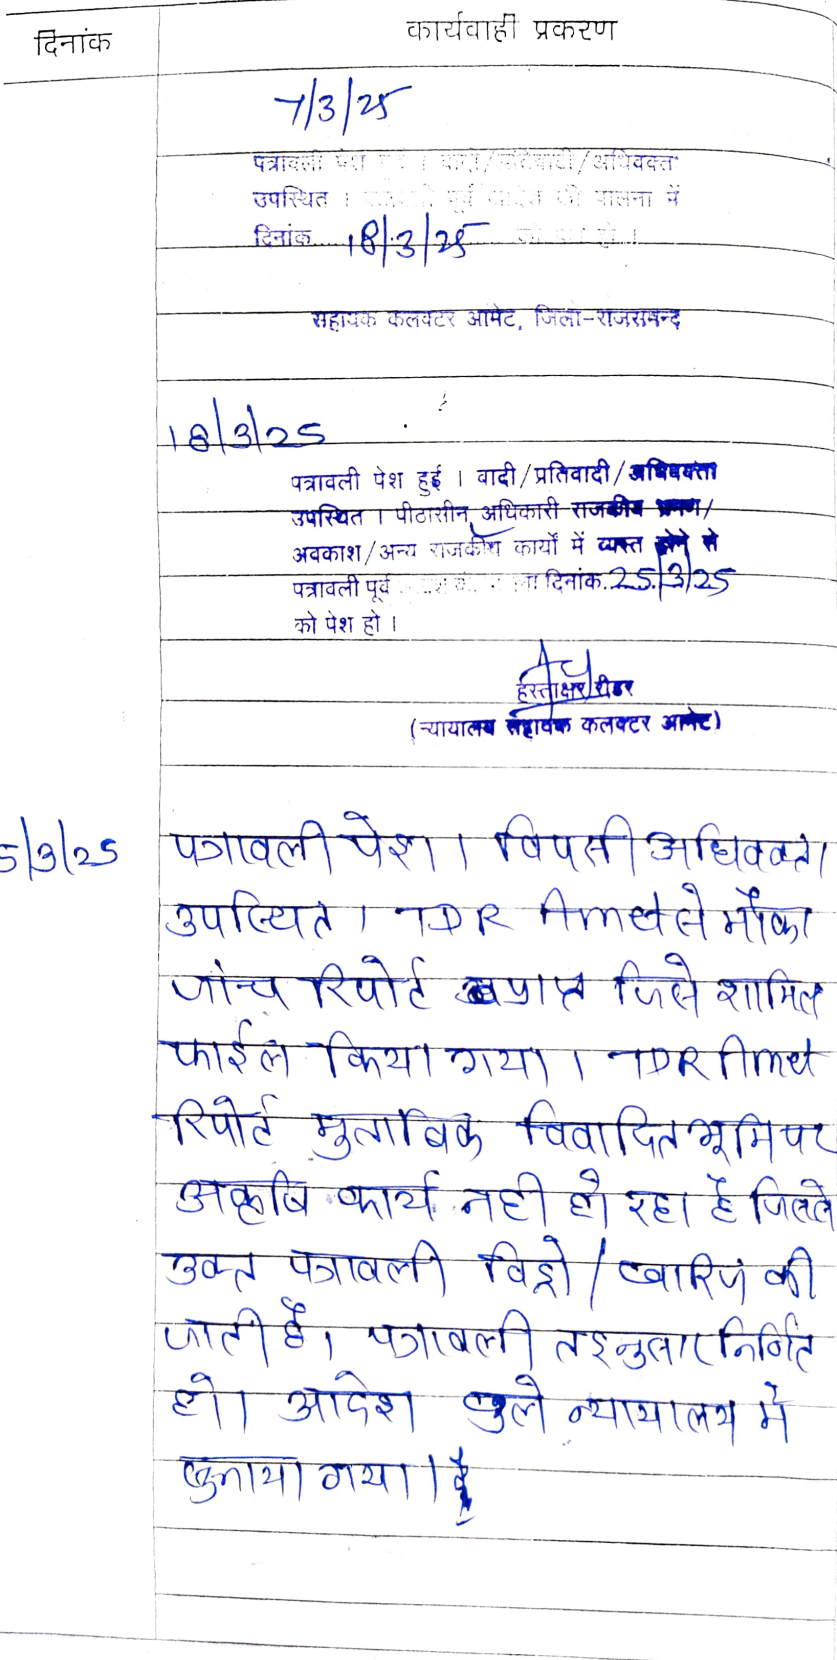 दिनांक
कार्यवाही प्रकरण
7/3/25
पत्रावली पेश हुई । वादी/प्रतिवादी/अधिवक्ता
उपस्थित । पूर्व की पालना में
दिनांक 18/3/25
सहायक कलक्टर आमेट, जिला-राजसमन्द
18/3/25
पत्रावली पेश हुई । वादी/प्रतिवादी/अधिवक्ता
उपस्थित । पीठासीन अधिकारी राजकीय भ्रमण/
अवकाश/अन्य राजकीय कार्यों में व्यस्त होने से
पत्रावली पूर्व दिनांक 25/3/25
को पेश हो ।
हस्ताक्षर रीडर
(न्यायालय सहायक कलक्टर आमेट)
5/3/25
पत्रावली पेश । विपक्षी अधिवक्ता
उपस्थित । TDR Amet से मौका
जांच रिपोर्ट प्राप्त जिसे शामिल
फाईल किया गया । TDR Amet
रिपोर्ट मुताबिक विवादित भूमि पर
अकृषि कार्य नही हो रहा है जिससे
उक्त पत्रावली विड्रो/खारिज की
जाती है। पत्रावली तद्नुसार निर्णित
हो। आदेश खुले न्यायालय में
सुनाया गया । है